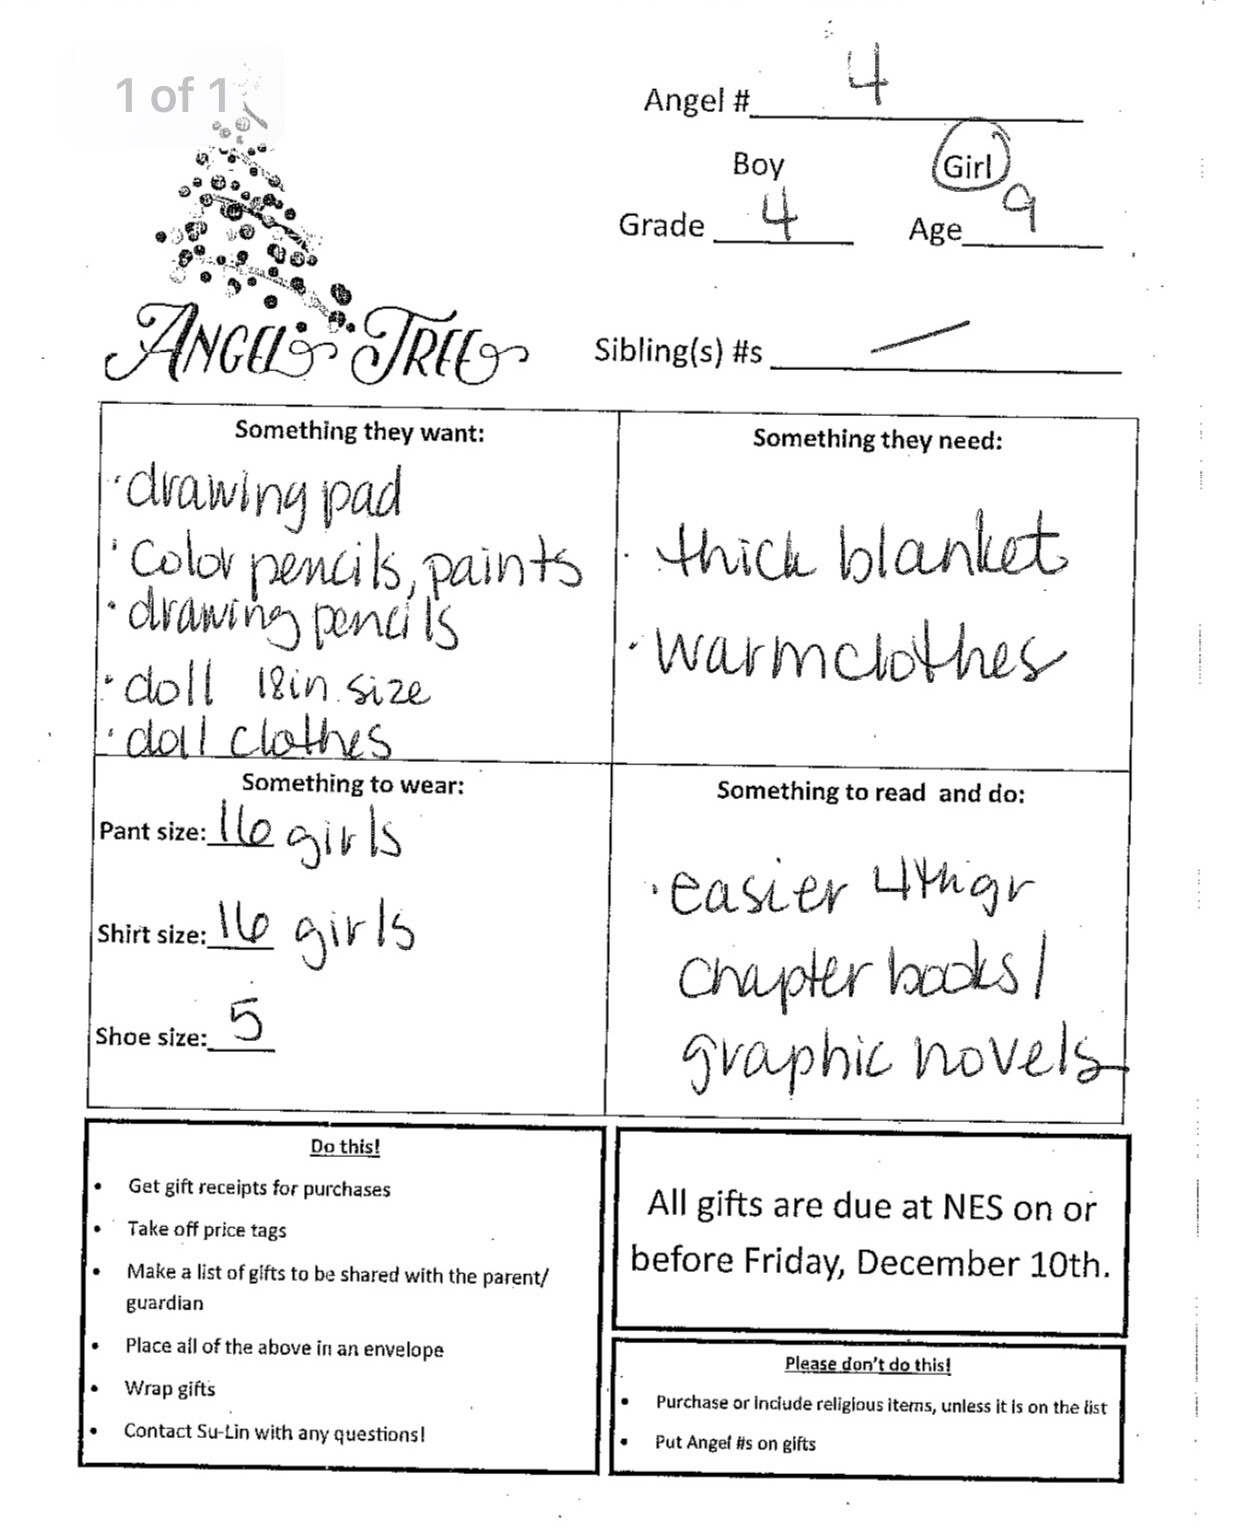 1 of 1
Angel # 4
Boy Girl
Grade 4 Age 9
ANGEL TREE
Sibling(s) #s —
Something they want:
· drawing pad
· color pencils, paints
· drawing pencils
· doll 18in. size
· doll clothes
Something they need:
· thick blanket
· warm clothes
Something to wear:
Pant size: 16 girls
Shirt size: 16 girls
Shoe size: 5
Something to read and do:
· easier 4th gr
chapter books/
graphic novels
Do this!
• Get gift receipts for purchases
• Take off price tags
• Make a list of gifts to be shared with the parent/
guardian
• Place all of the above in an envelope
• Wrap gifts
• Contact Su-Lin with any questions!
All gifts are due at NES on or
before Friday, December 10th.
Please don't do this!
• Purchase or include religious items, unless it is on the list
• Put Angel #s on gifts